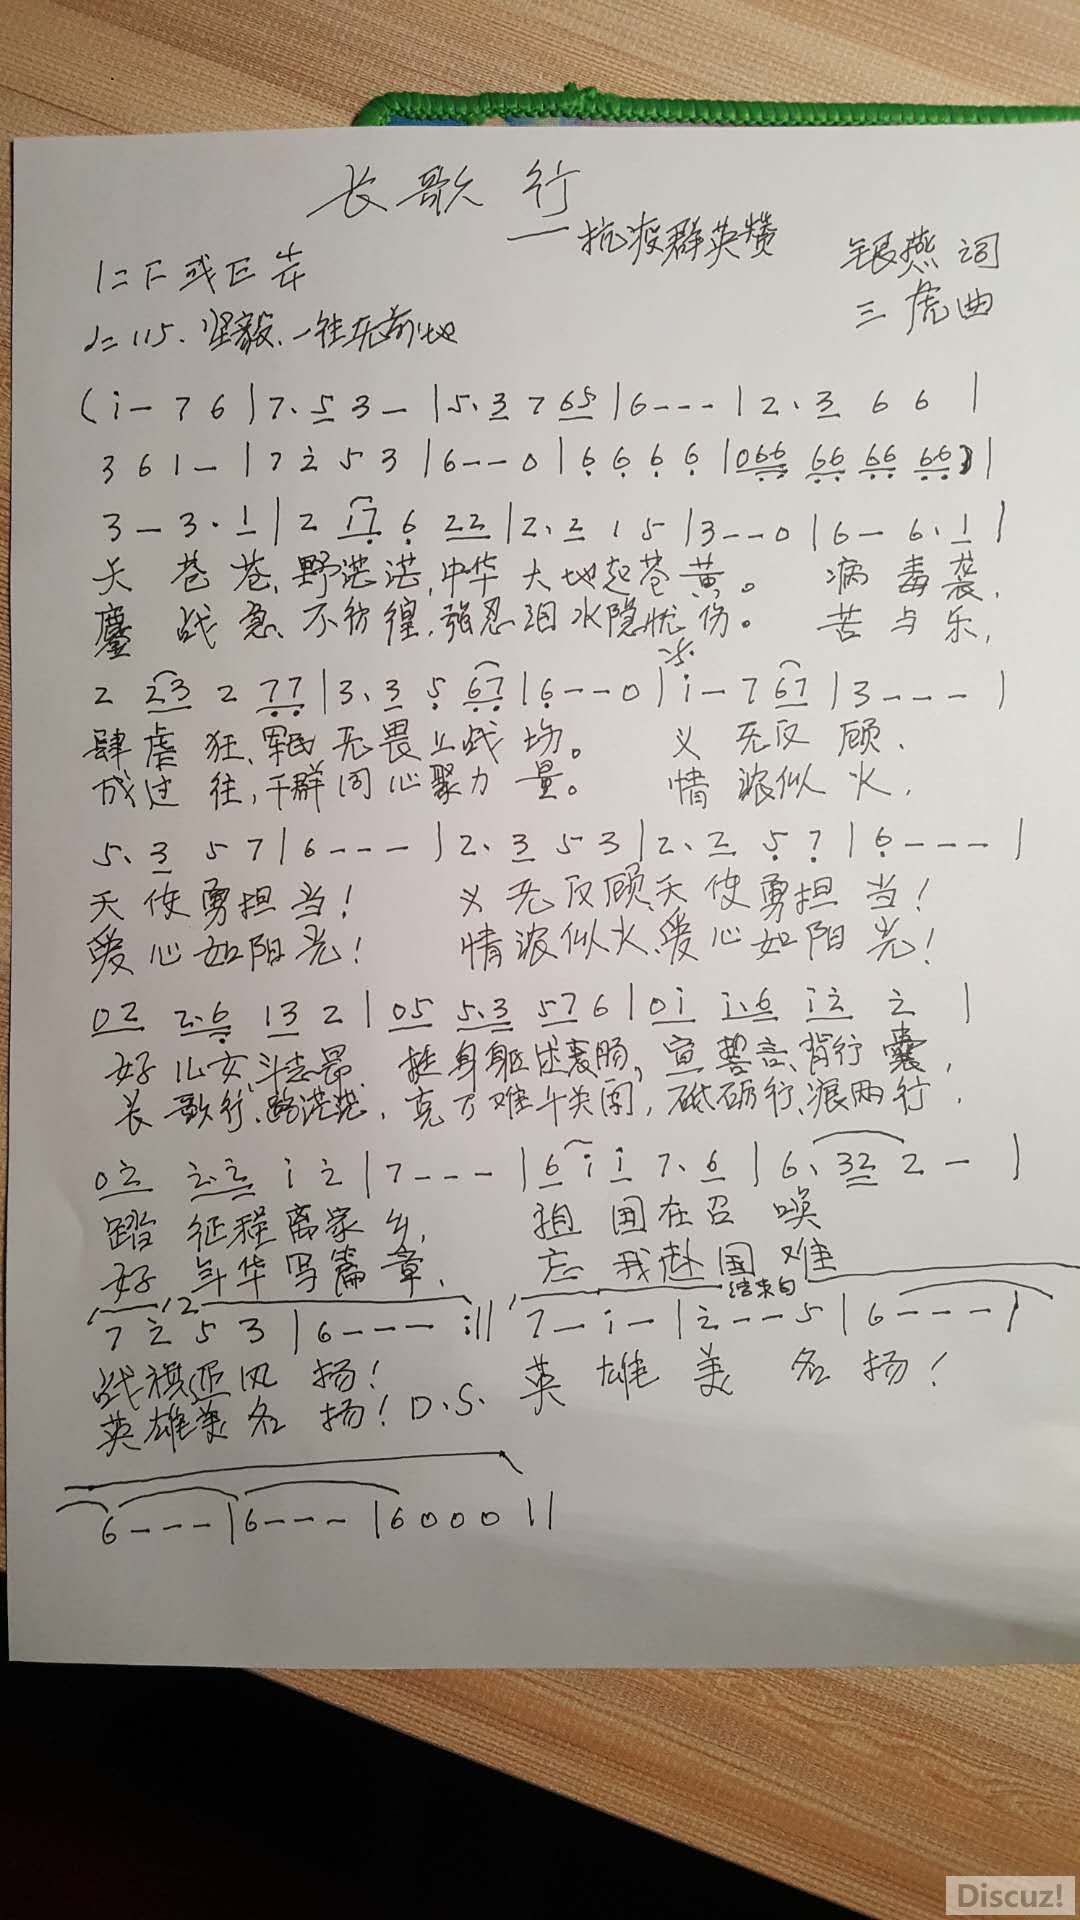 长歌行
——抗疫群英赞
银燕 词
1=F或E 4/4
三虎曲
♩=115. 坚毅、一往无前地
(i - 7 6 | 7. 5 3 - | 5. 3 7 65 | 6 - - - | 2. 3 6 6 |
3 6 1 - | 7 2 5 3 | 6 - - 0 | 6 6 6 6 | 066 66 66 66) |
3 - 3. 1 | 2 17 6 22 | 2. 2 1 5 | 3 - - 0 | 6 - 6. 1 |
天苍苍,野茫茫,中华大地起苍黄。 病毒袭,
鏖战急、不彷徨,强忍泪水隐忧伤。 苦与乐,
2 23 2 77 | 3. 3 5 67 | 6 - - 0 | i - 7 67 | 3 - - - |
肆虐狂,军民无畏上战场。 义无反顾、
成过往,干群同心聚力量。 情浓似火,
5. 3 5 7 | 6 - - - | 2. 3 5 3 | 2. 2 5 7 | 6 - - - |
天使勇担当! 义无反顾、天使勇担当!
爱心如阳光! 情浓似火、爱心如阳光!
02 2.6 13 2 | 05 5.3 57 6 | 0i i.6 i2 2 |
好儿女、斗志昂, 挺身躯述衷肠, 宣誓言、背行囊,
长歌行、路茫茫, 克万难斗关闯, 砥砺行、泪两行,
02 2.2 i 2 | 7 - - - | 6 i i 7. 6 | 6. 32 2 - |
踏征程离家乡, 祖国在召唤
好年华写篇章, 忘我赴国难
结束句
7 2 5 3 | 6 - - - :|| 7 - i - | 2 - - 5 | 6 - - - |
战旗迎风扬! 英雄美名扬!
英雄美名扬! D.S.
6 - - - | 6 - - - | 6 0 0 0 ||
Discuz!